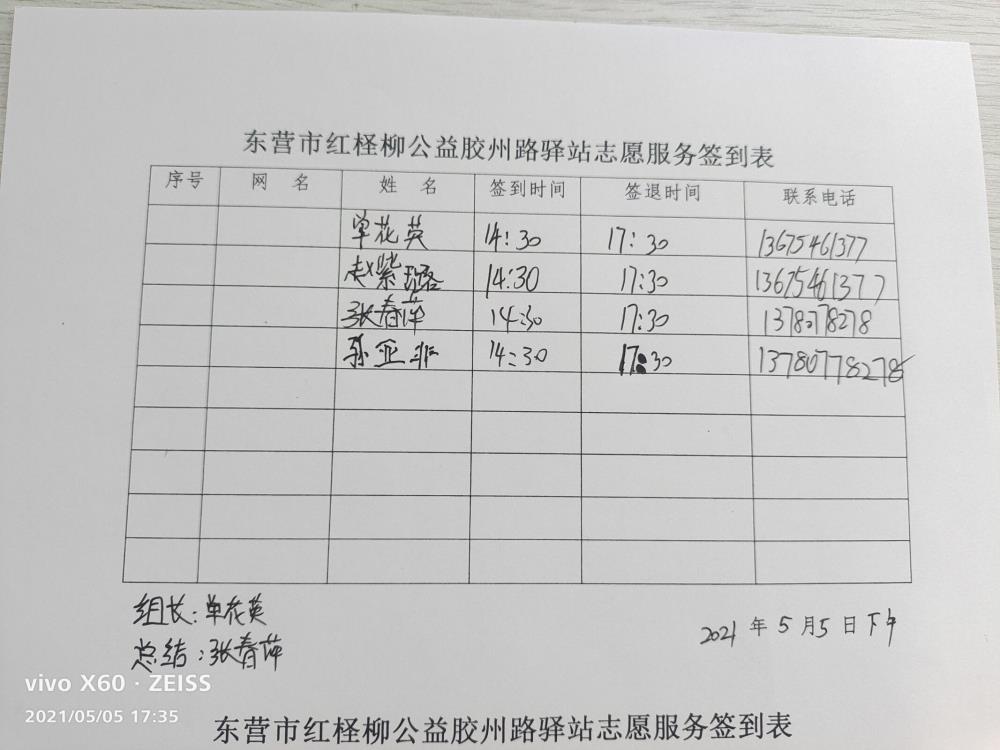 东营市红柽柳公益胶州路驿站志愿服务签到表
序号 网 名 姓 名 签到时间 签退时间 联系电话
单花英 14:30 17:30 13675461377
赵紫璐 14:30 17:30 13675461377
张春萍 14:30 17:30 1378078278
孙亚非 14:30 17:30 137807782785
组长:单花英
总结:张春萍
2021年5月5日下午
vivo X60 · ZEISS
2021/05/05 17:35
东营市红柽柳公益胶州路驿站志愿服务签到表